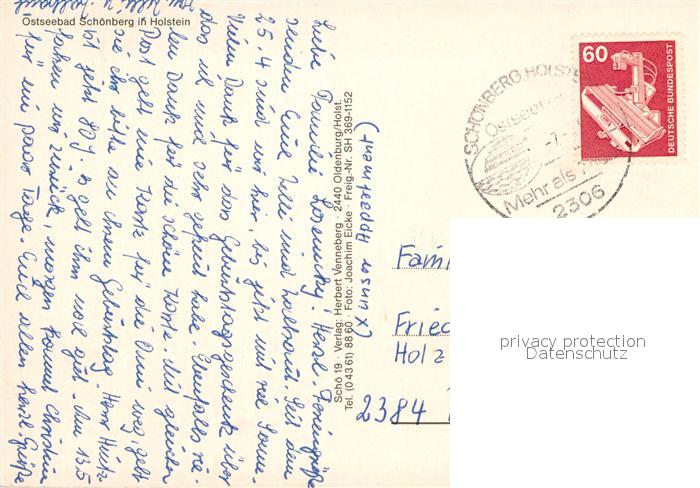 Ostseebad Schönberg in Holstein
Liebe Familie Herzl. Feriengrüße
senden Euch Julli und Seit dem
25.4 sind wir hier, bis jetzt mit viel Sonne.
Vielen Dank für das Geburtstagsgeschenk über
das ich mich sehr gefreut habe. Ebenfalls vie-
len Dank für die schöne Karte. Mit gleicher
Post geht eine Karte für die Omi weg, gebt
sie ihr bitte an ihrem Geburtstag. Herr
ist jetzt 80J. es geht ihm noch gut. Am 13.5
fahren wir zurück, morgen kommt Christin
für ein paar Tage. Euch allen herzl. Grüße
Schö 19 · Verlag: Herbert Venneberg · 2440 Oldenburg/Holst.
Tel. (0 43 61) 88 60 · Foto: Joachim Eicke · Freig.-Nr. SH 369-1152
(x unser Appartment)
SCHÖNBERG, HOLST
Ostsee
Mehr als
2306
60
DEUTSCHE BUNDESPOST
Fami
Fried
Holz
2384
privacy protection
Datenschutz